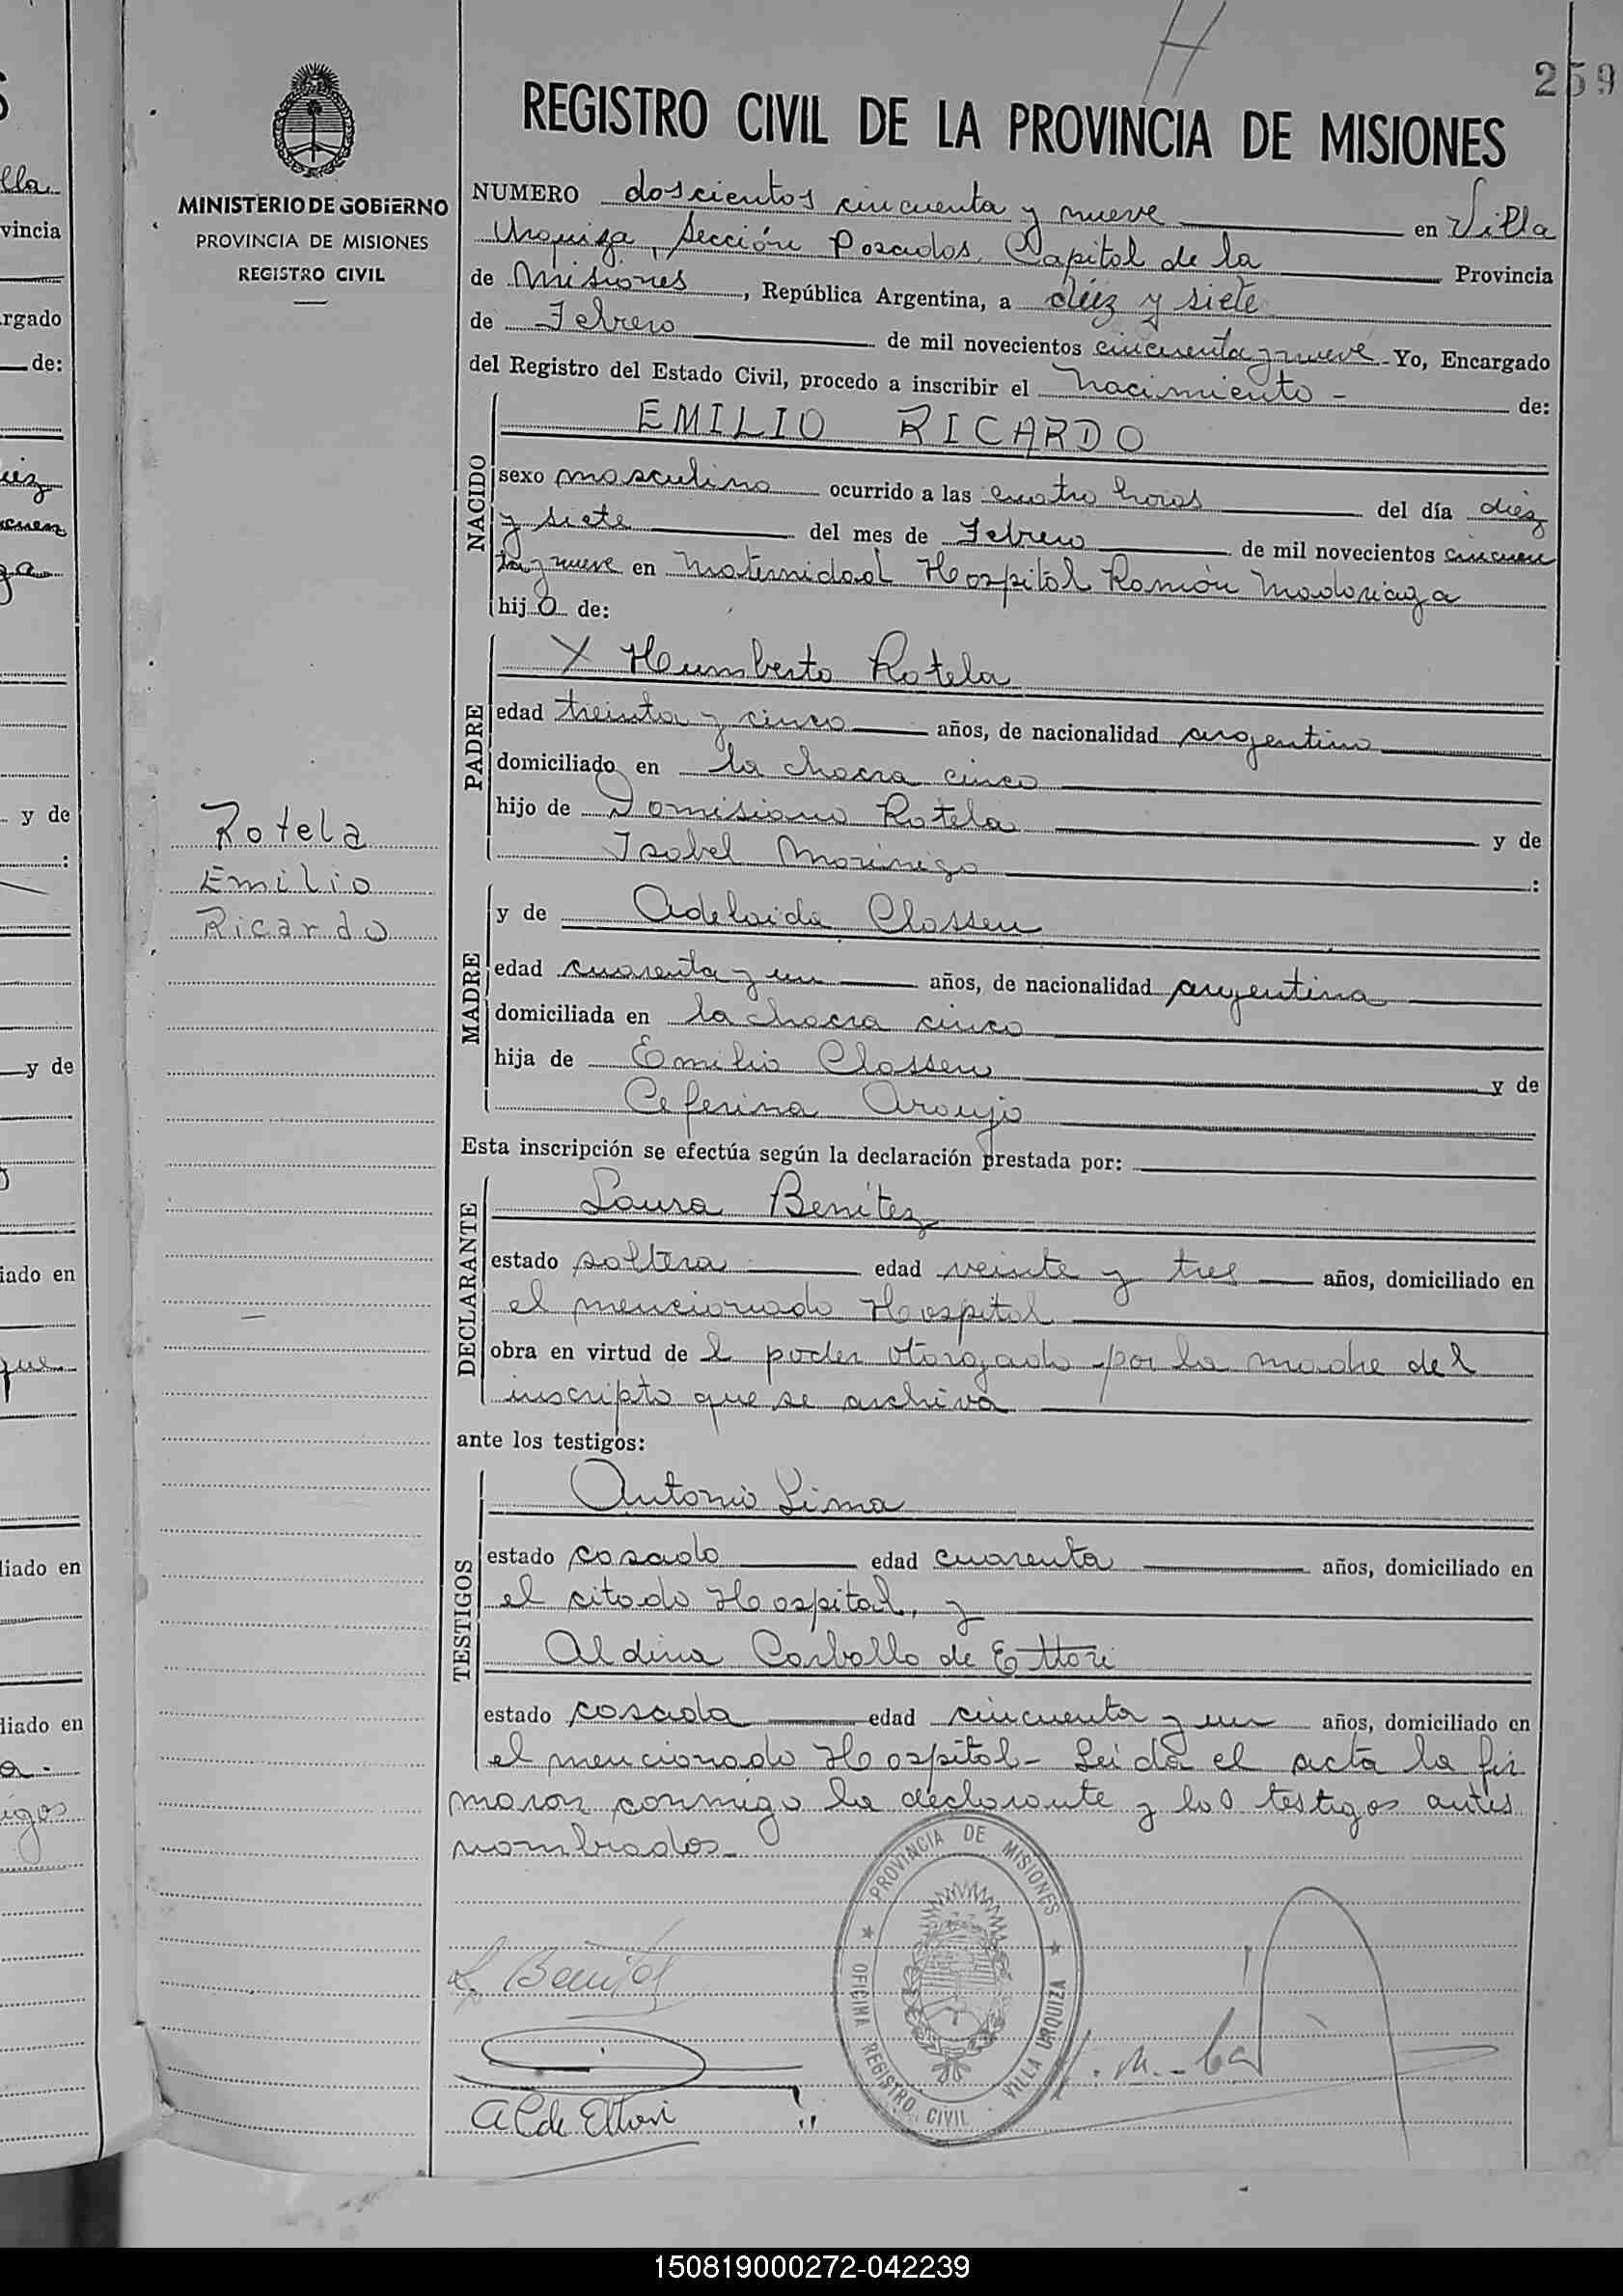 259
REGISTRO CIVIL DE LA PROVINCIA DE MISIONES
MINISTERIO DE GOBIERNO
PROVINCIA DE MISIONES
REGISTRO CIVIL
NUMERO doscientos cincuenta y nueve en Villa
Urquiza, Sección Posadas, Capital de la Provincia
de Misiones, República Argentina, a diéz y siete
de Febrero de mil novecientos cincuenta y nueve Yo, Encargado
del Registro del Estado Civil, procedo a inscribir el nacimiento - de:
NACIDO
EMILIO RICARDO
sexo masculino ocurrido a las cuatro horas del día diéz
y siete del mes de Febrero de mil novecientos cincuen
ta y nueve en Maternidad Hospital Ramón Madariaga
hijo de:
PADRE
X Humberto Rotela
edad treinta y cinco años, de nacionalidad argentino
domiciliado en la chacra cinco
hijo de Domisiano Rotela y de
Isabel Morinigo :
Rotela
Emilio
Ricardo
MADRE
y de Adelaida Classen
edad cuarenta y un años, de nacionalidad argentina
domiciliada en la chacra cinco
hija de Emilio Classen y de
Ceferina Araujo
Esta inscripción se efectúa según la declaración prestada por:
DECLARANTE
Laura Benítez
estado soltera edad veinte y tres años, domiciliado en
el mencionado Hospital
obra en virtud de l poder otorgado por la madre del
inscripto que se archiva
ante los testigos:
TESTIGOS
Antonio Lima
estado casado edad cuarenta años, domiciliado en
el citado Hospital, y
Aldina Carballo de Ettori
estado casada edad cincuenta y un años, domiciliado en
el mencionado Hospital- Leida el acta la fir
maron conmigo la declarante y los testigos antes
nombrados.-
PROVINCIA DE MISIONES
OFICINA REGISTRO CIVIL - VILLA URQUIZA
L Benítez
A C de Ettori
150819000272-042239